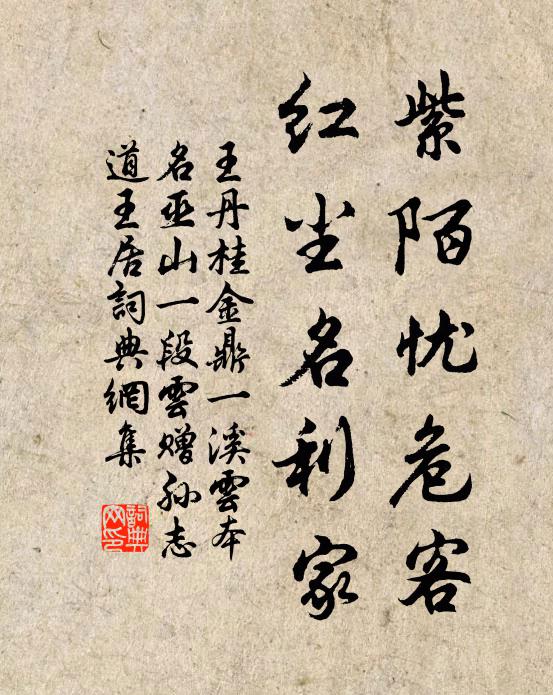 紫陌忧危客
红尘名利家
王丹桂金鼎一溪雲本
名巫山一段雲赠孙志
道王居詞典網集
詞典
网印